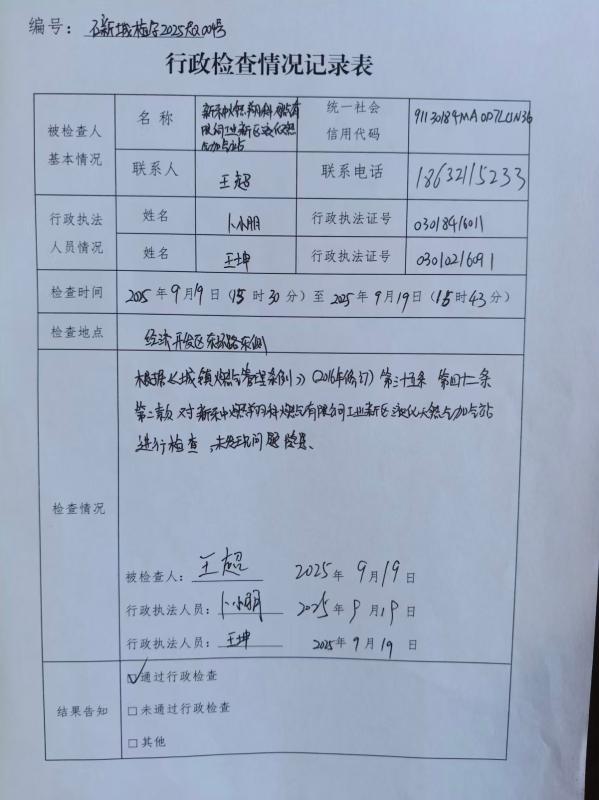 编号：石新城检字2025RQ004号
行政检查情况记录表
被检查人
基本情况
名称
新乐中燃翔科燃气有
限公司工业新区液化天然
气加气站
统一社会
信用代码
91130184MA0D7LUN36
联系人
王超
联系电话
18632115233
行政执法
人员情况
姓名
卜小朋
行政执法证号
03018416011
姓名
王坤
行政执法证号
03010216091
检查时间
2025年9月19日（15时30分）至2025年9月19日（15时43分）
检查地点
经济开发区东环路东侧
检查情况
根据《城镇燃气管理条例》（2016年修订）第三十五条 第四十二条
第二款 对新乐中燃翔科燃气有限公司工业新区液化天然气加气站
进行检查，未发现问题隐患。
被检查人：王超 2025年9月19日
行政执法人员：卜小朋 2025年9月19日
行政执法人员：王坤 2025年9月19日
结果告知
☑通过行政检查
□未通过行政检查
□其他